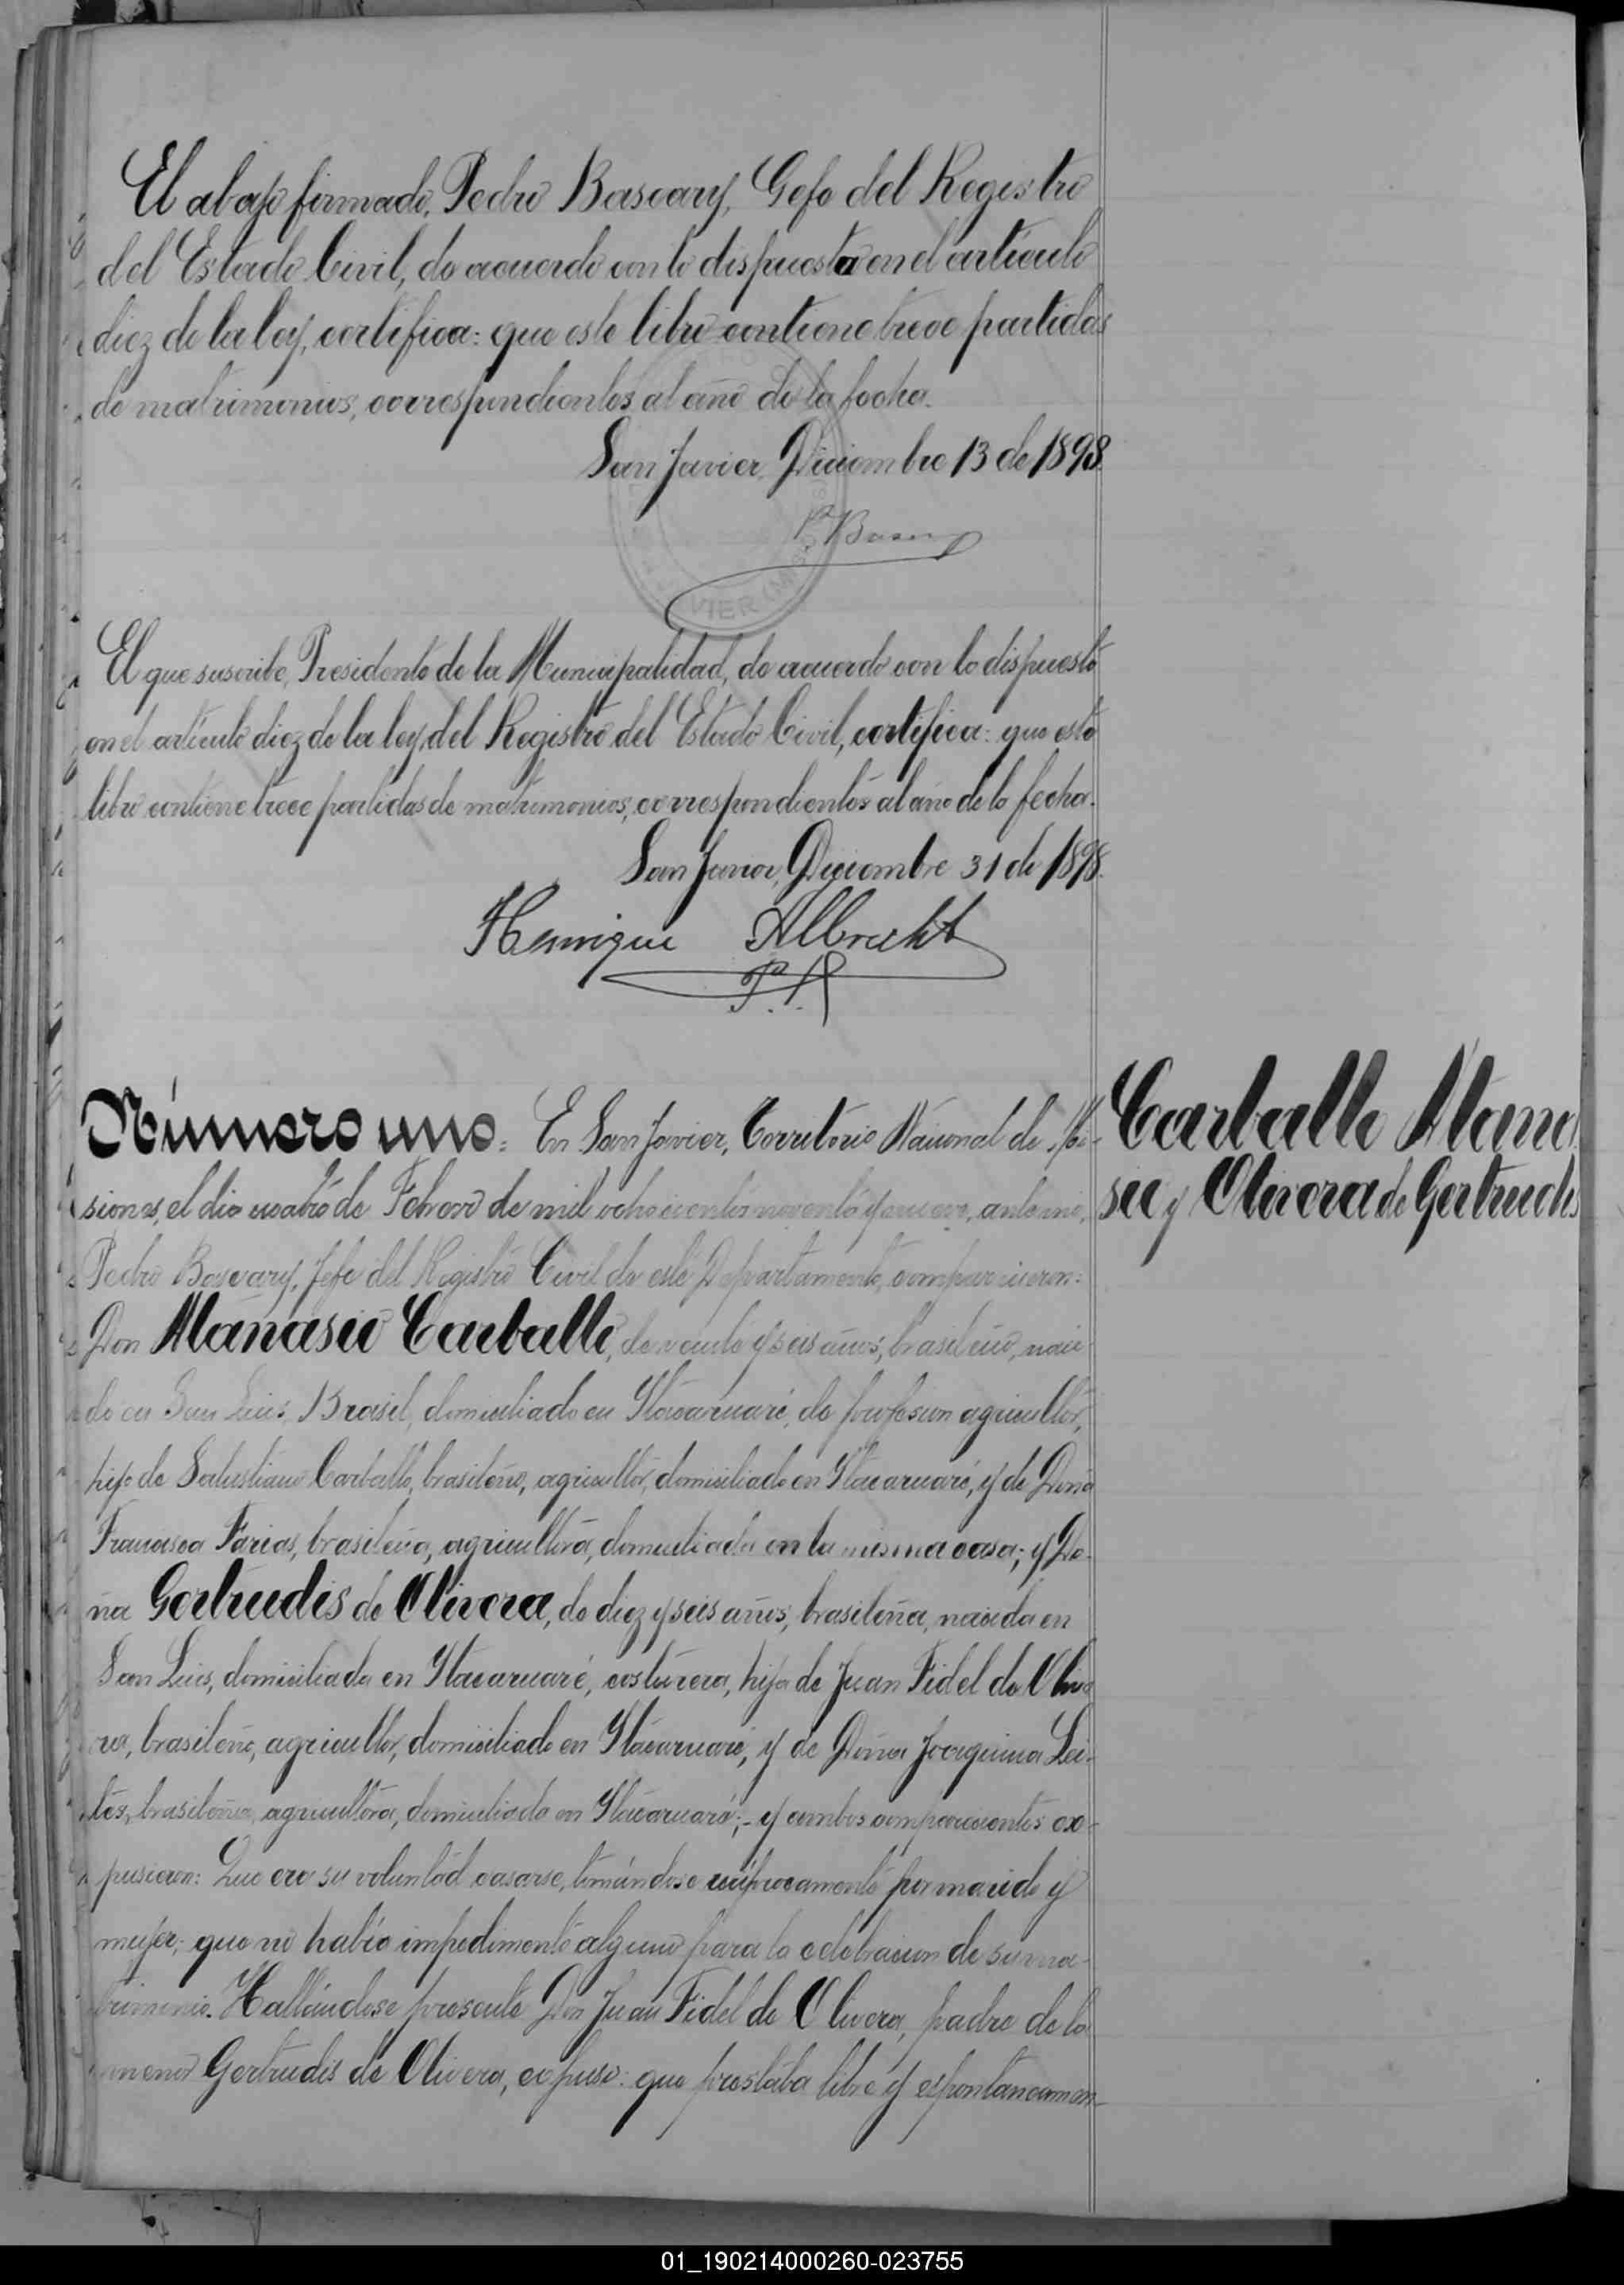 El abajo firmado, Pedro Bascary, Gefe del Registro
del Estado Civil, de acuerdo con lo dispuesto en el artículo
diez de la ley, certifica: que este libro contiene trece partidas
de matrimonios, correspondientes al año de la fecha.
San Javier, Diciembre 13 de 1898
P. Bascary
VIER (MIS
El que suscribe, Presidente de la Municipalidad, de acuerdo con lo dispuesto
en el artículo diez de la ley del Registro del Estado Civil, certifica: que este
libro contiene trece partidas de matrimonios, correspondientes al año de la fecha.
San Javier, Diciembre 31 de 1898.
Henrique Albrecht
Número uno. En San Javier, Territorio Nacional de Mi-
siones, el dia cuatro de Febrero de mil ochocientos noventa y nueve, ante mi,
Pedro Bascary, Jefe del Registro Civil de este Departamento, comparecieron:
Don Atanasio Carballo, de veinte y seis años, brasileño, naci-
do en San Luis, Brasil, domiciliado en Itacaruaré, de profesion agricultor,
hijo de Salustiano Carballo, brasileño, agricultor, domiciliado en Itacaruaré, y de Doña
Francisca Farias, brasileña, agricultora, domiciliada en la misma casa; y Do-
ña Gertrudis de Olivera, de diez y seis años, brasileña, nacida en
San Luis, domiciliada en Itacaruaré, costurera, hija de Juan Fidel de Olive
ra, brasileño, agricultor, domiciliado en Itacaruaré, y de Doña Joaquina Lei-
tes, brasileña, agricultora, domiciliada en Itacaruaré;- y ambos comparecientes ex-
pusieron: Que era su voluntad casarse, tomándose recíprocamente por marido y
mujer; que no habia impedimento alguno para la celebracion de su ma-
trimonio. Hallándose presente Don Juan Fidel de Olivera, padre de la
menor Gertrudis de Olivera, expuso: que prestaba libre y espontaneamen-
Carballo Atana
sio y Olivera de Gertrudis
01_190214000260-023755